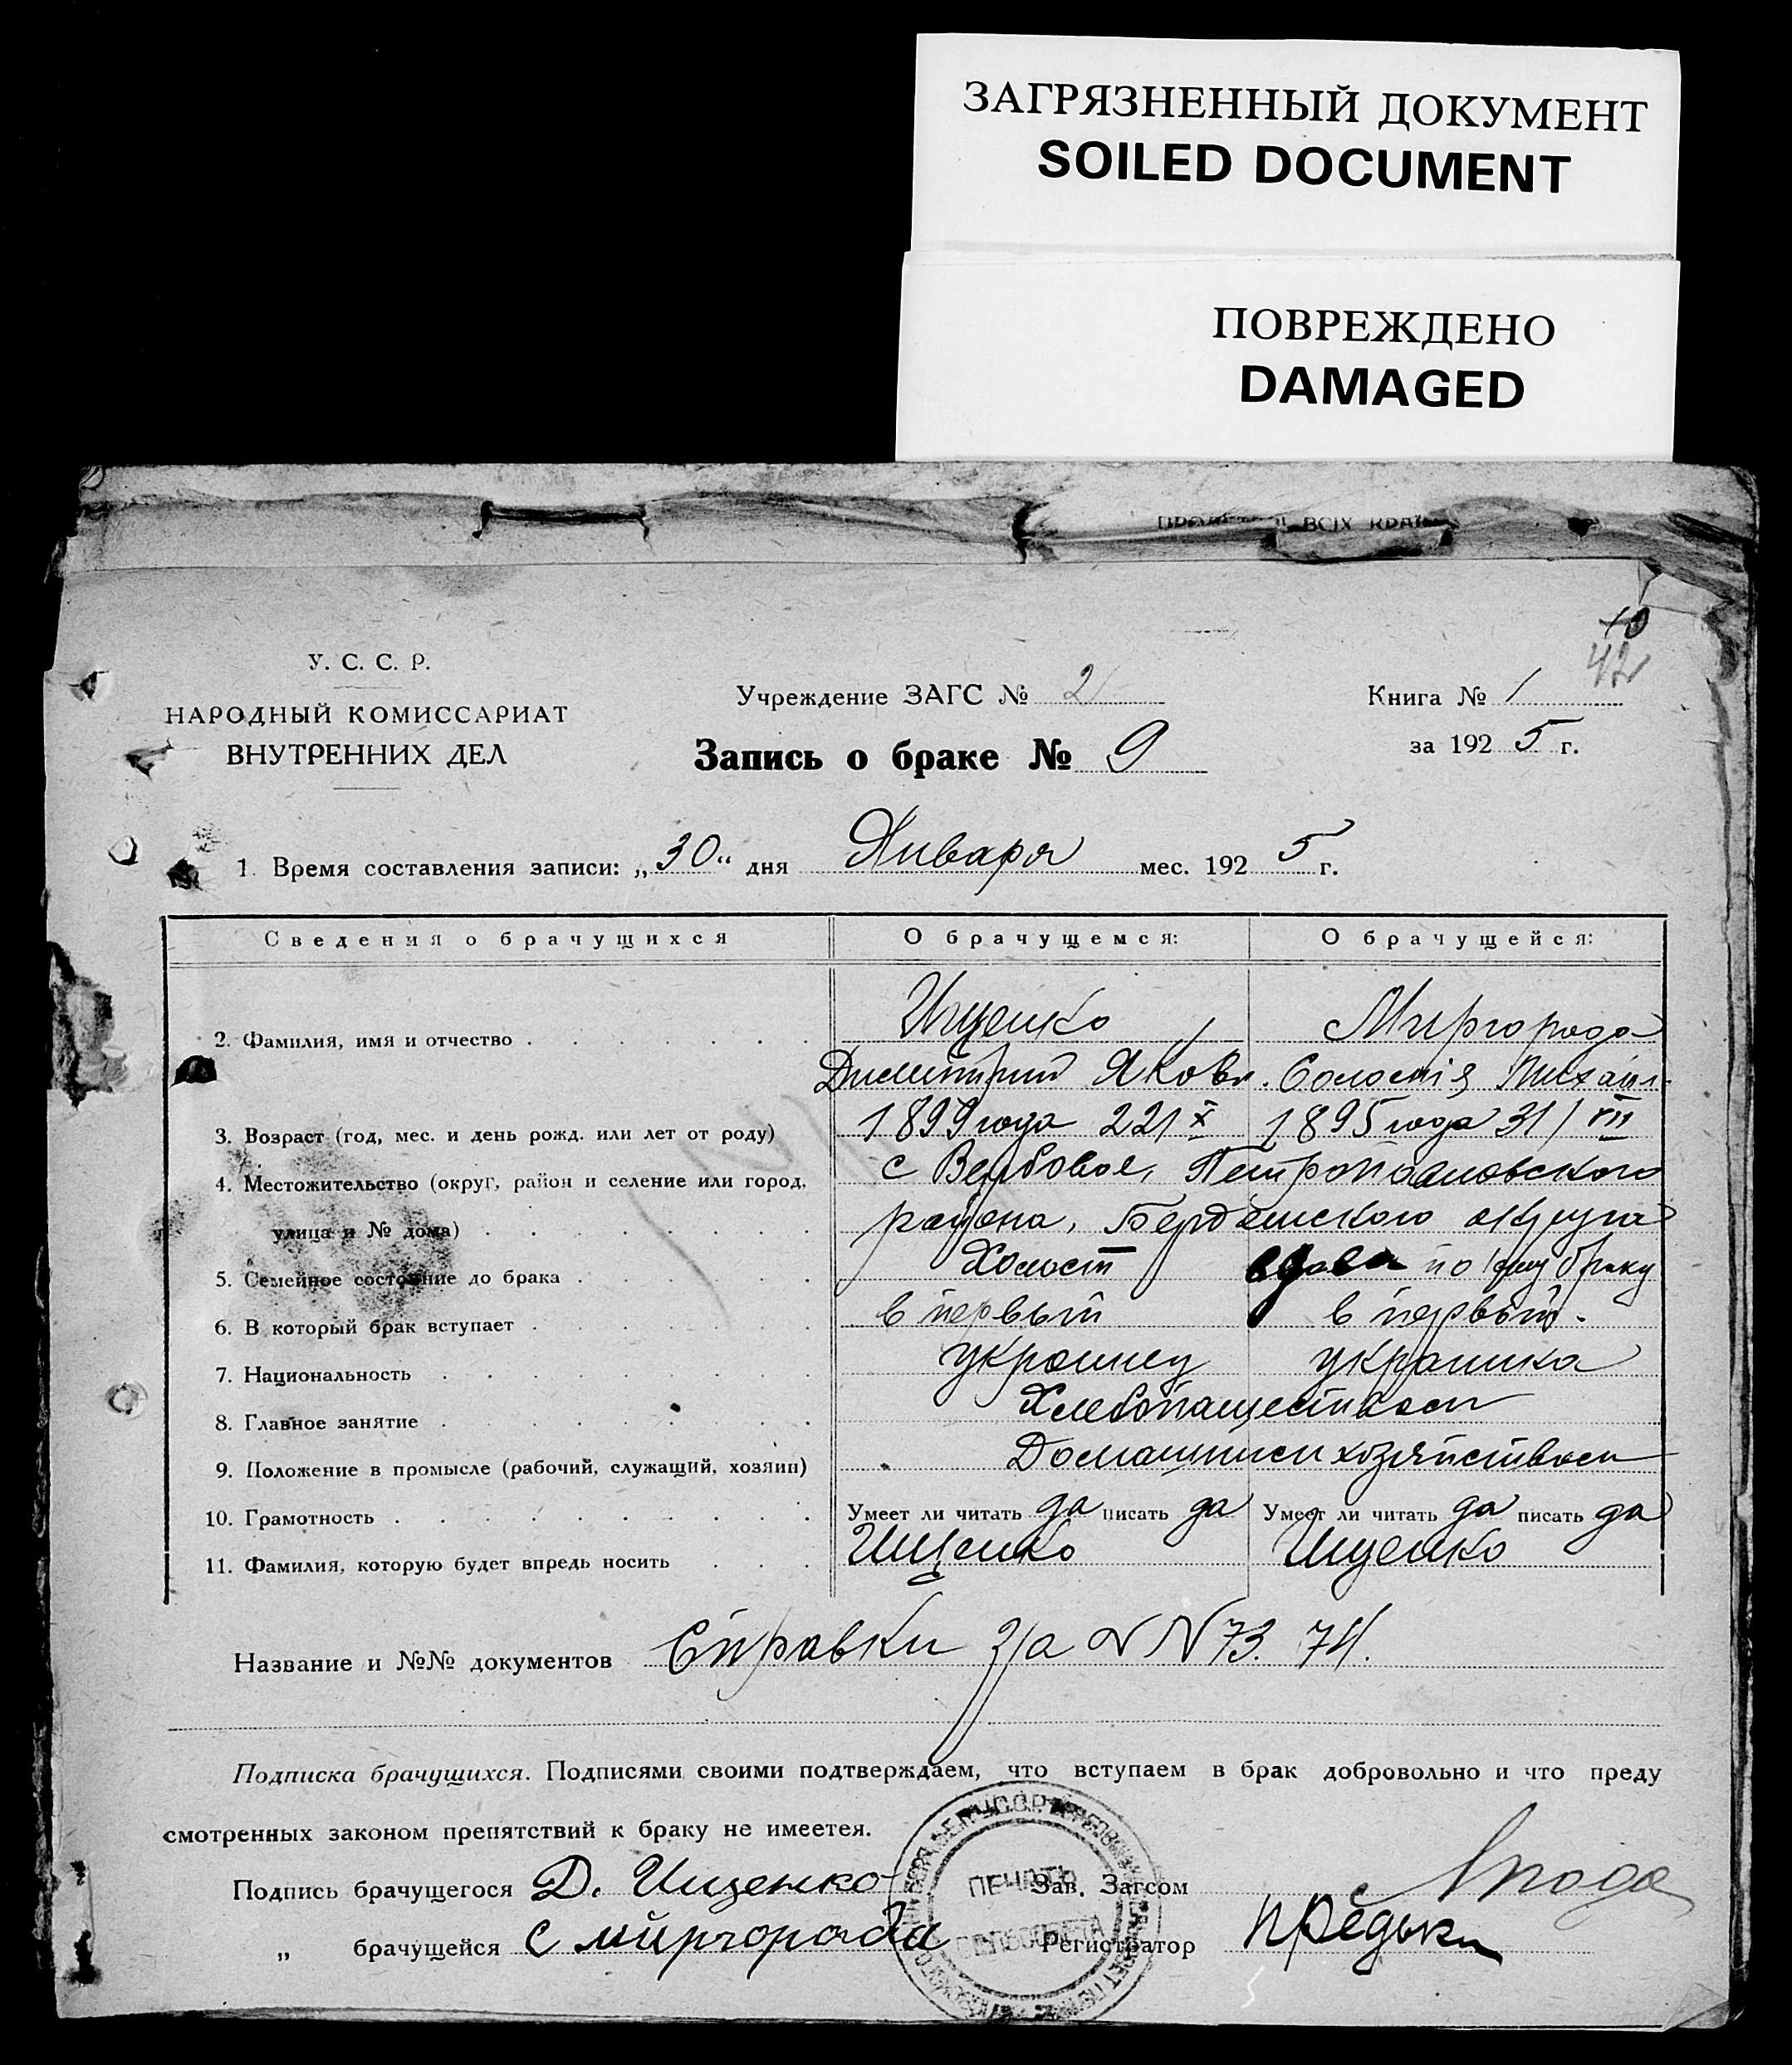 ЗАГРЯЗНЕННЫЙ ДОКУМЕНТ
SOILED DOCUMENT
ПОВРЕЖДЕНО
DAMAGED
ВСІХ КРАЇ
10
42
У. С. С. Р.
НАРОДНЫЙ КОМИССАРИАТ
ВНУТРЕННИХ ДЕЛ
Учреждение ЗАГС № 2
Книга № 1
Запись о браке № 9
за 1925 г.
1. Время составления записи: „30“ дня Января мес. 1925 г.
Сведения о брачущихся О брачущемся: О брачущейся:
Ищенко Миргорода
2. Фамилия, имя и отчество
Димитрий Яковл. Соломія Михайл.
3. Возраст (год, мес. и день рожд. или лет от роду) 1899 года 22/X 1895 года 31/VII
4. Местожительство (округ, район и селение или город, с Вербовое, Петропавловского
улица и № дома) района, Бердянского округа
5. Семейное состояние до брака Холост вдова по браку
6. В который брак вступает в первый в первый.
7. Национальность украинец украинка
8. Главное занятие Хлебопашеством
9. Положение в промысле (рабочий, служащий, хозяин) Домашним хозяйством
10. Грамотность Умеет ли читать да писать да Умеет ли читать да писать да
11. Фамилия, которую будет впредь носить Ищенко Ищенко
Название и №№ документов Справки за NN 73. 74.
Подписка брачущихся. Подписями своими подтверждаем, что вступаем в брак добровольно и что преду
смотренных законом препятствий к браку не имеется.
ПЕЧАТЬ
СЕЛЬСОВЕТА
Подпись брачущегося Д. Ищенко Зав. Загсом
„ брачущейся С миргорода Регистратор